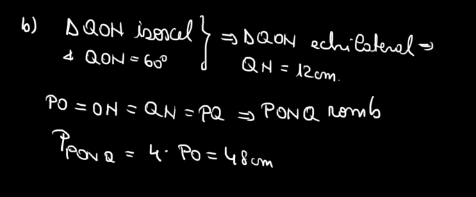 b) Δ QON isoscel } ⇒ Δ QON echilateral ⇒
∢ QON = 60° QN = 12 cm.
PO = ON = QN = PQ ⇒ PONQ romb
P PONQ = 4 · PO = 48 cm